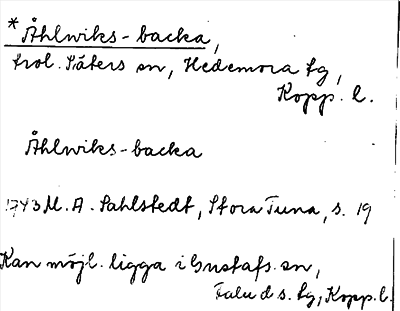 * Åhlwiks-backa,
trol. Säters sn, Hedemora tg,
Kopp. l.
Åhlwiks-backa
1743 M. A. Sahlstedt, Stora Tuna, s. 19
Kan möjl. ligga i Gustafs sn,
Falu d s. tg, Kopp. l.